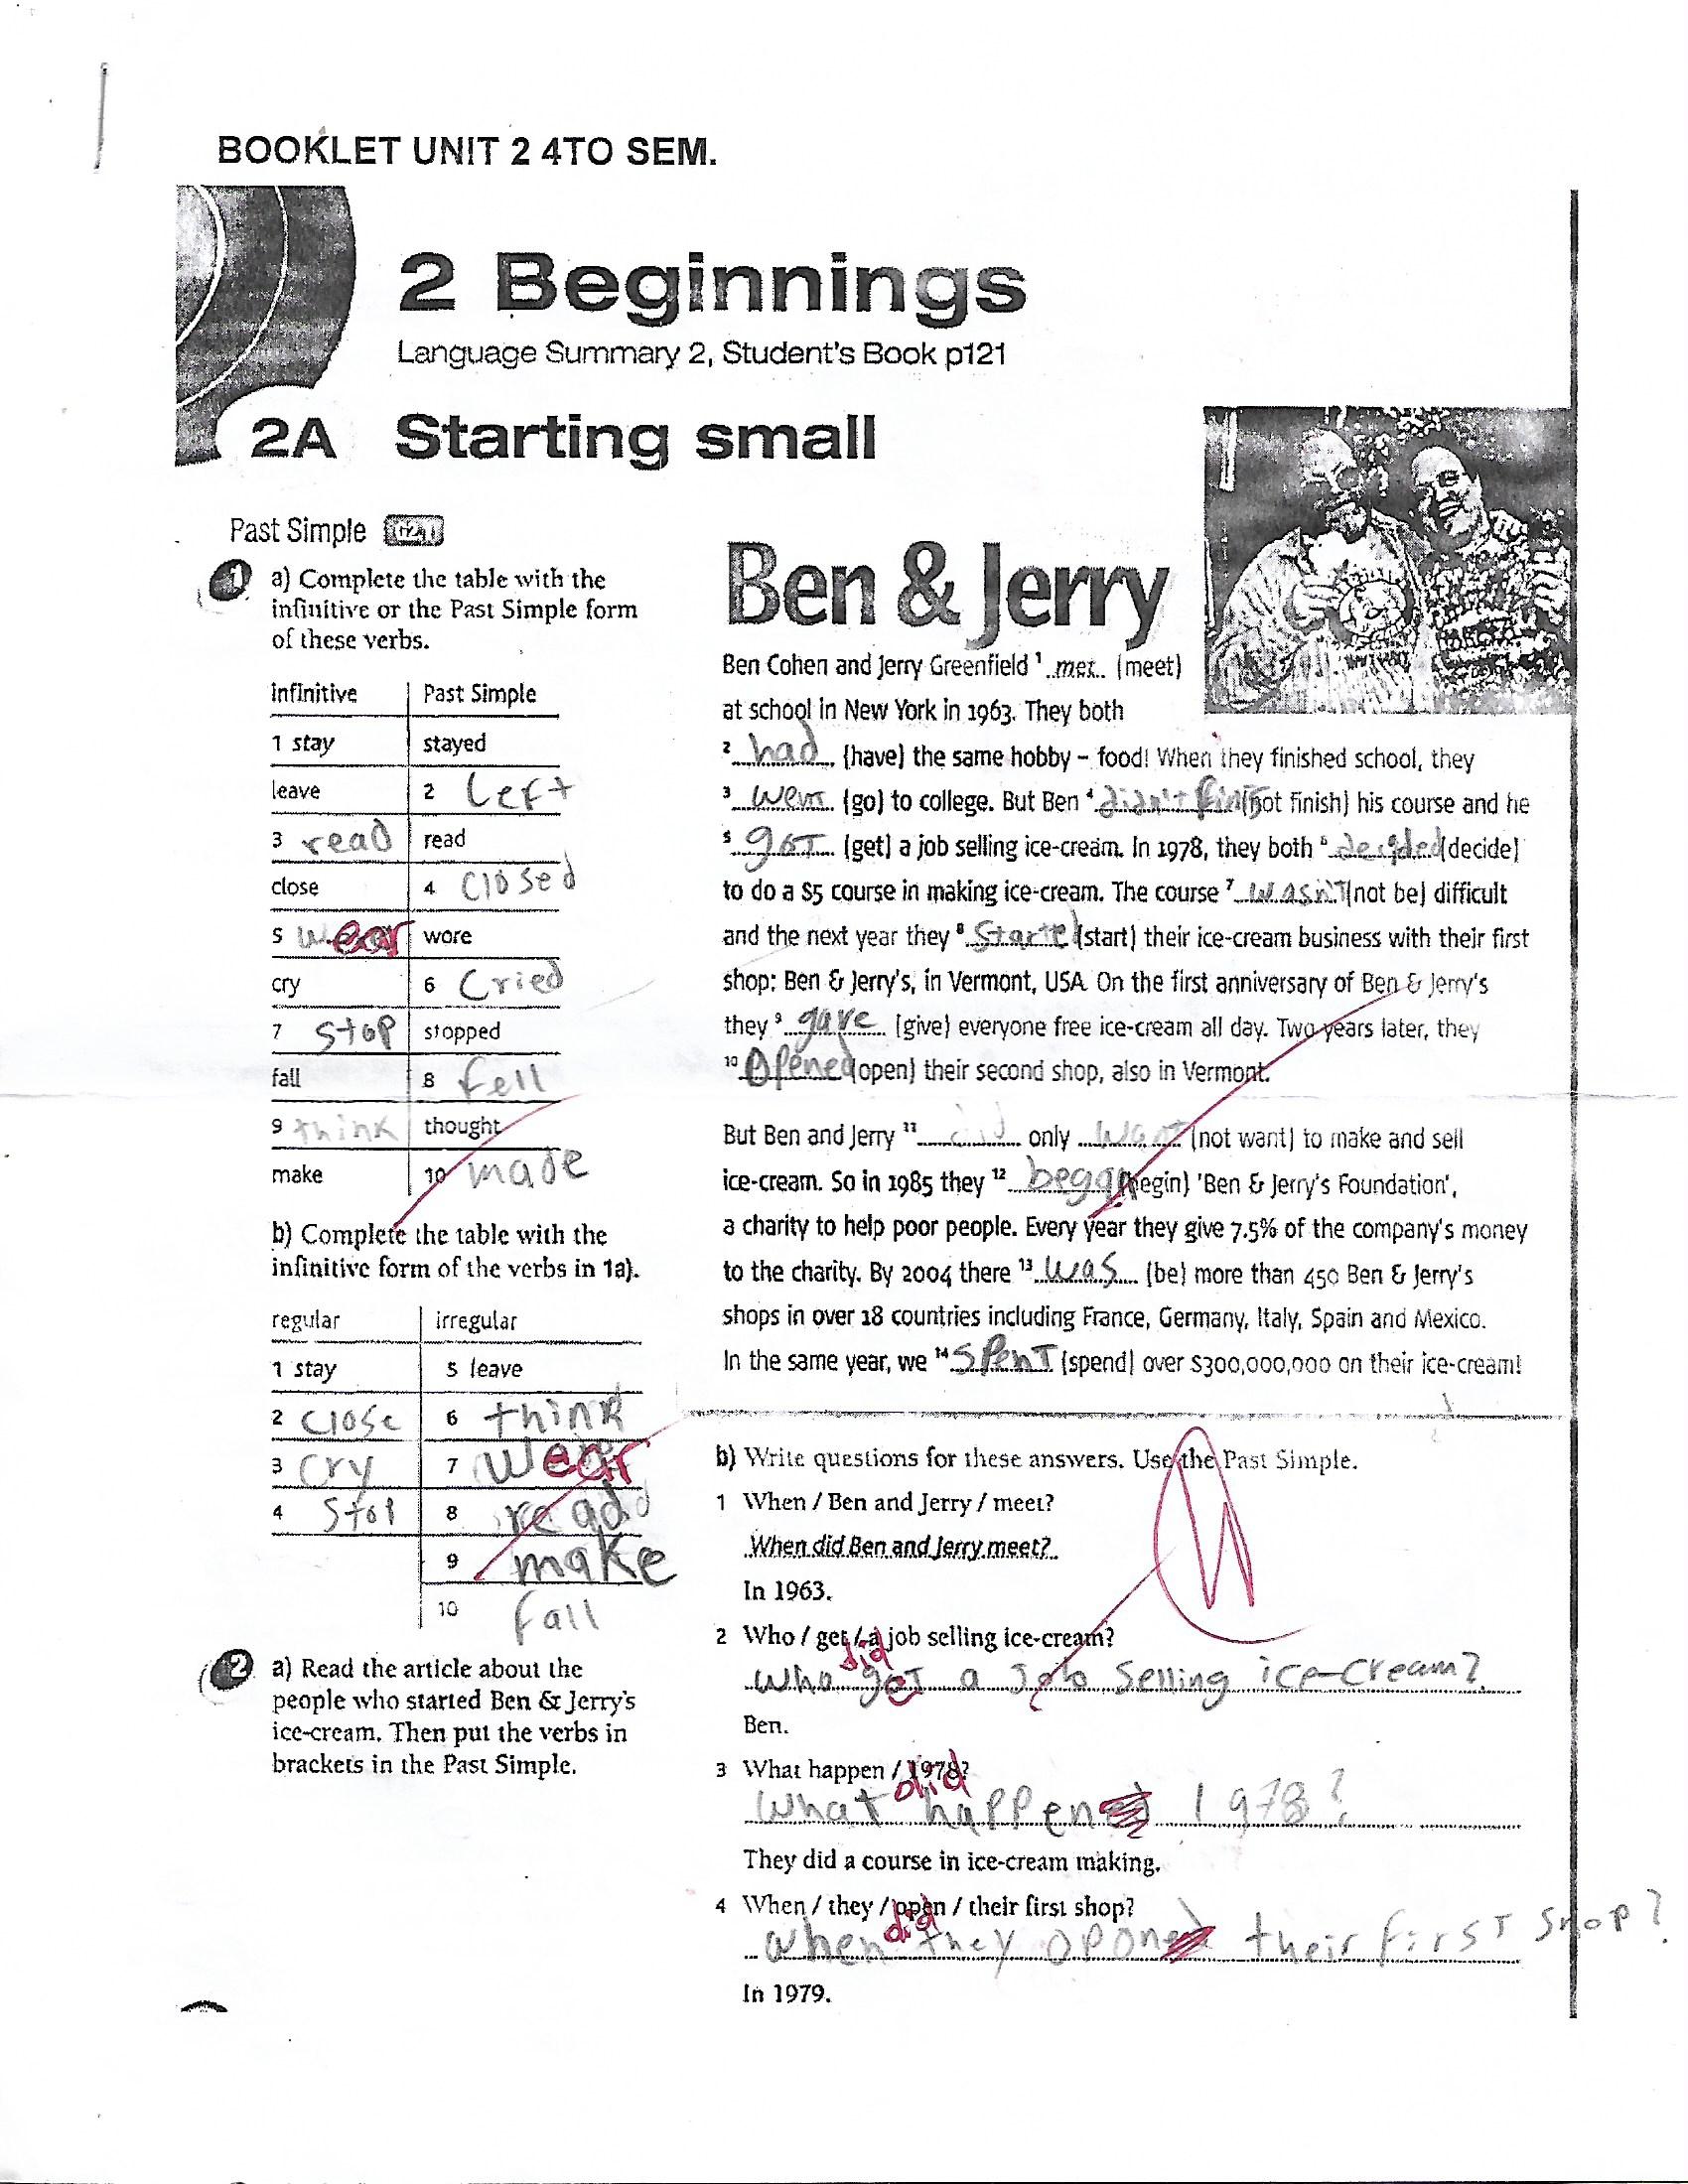 BOOKLET UNIT 2 4TO SEM.
2 Beginnings
Language Summary 2, Student's Book p121
2A Starting small
Past Simple G2.1
1 a) Complete the table with the
infinitive or the Past Simple form
of these verbs.
infinitive Past Simple
1 stay stayed
leave 2 Left
3 read read
close 4 closed
5 wear wore
cry 6 Cried
7 stop stopped
fall 8 fell
9 think thought
make 10 made
b) Complete the table with the
infinitive form of the verbs in 1a).
regular irregular
1 stay 5 leave
2 close 6 think
3 cry 7 wear
4 Stop 8 read
9 make
10 fall
2 a) Read the article about the
people who started Ben & Jerry's
ice-cream. Then put the verbs in
brackets in the Past Simple.
Ben & Jerry
Ben Cohen and Jerry Greenfield 1 met (meet)
at school in New York in 1963. They both
2 had (have) the same hobby – food! When they finished school, they
3 went (go) to college. But Ben 4 didn't finish (not finish) his course and he
5 got (get) a job selling ice-cream. In 1978, they both 6 decided (decide)
to do a $5 course in making ice-cream. The course 7 wasn't (not be) difficult
and the next year they 8 started (start) their ice-cream business with their first
shop: Ben & Jerry's, in Vermont, USA. On the first anniversary of Ben & Jerry's
they 9 gave (give) everyone free ice-cream all day. Two years later, they
10 Opened (open) their second shop, also in Vermont.
But Ben and Jerry 11 did only want (not want) to make and sell
ice-cream. So in 1985 they 12 began (begin) 'Ben & Jerry's Foundation',
a charity to help poor people. Every year they give 7.5% of the company's money
to the charity. By 2004 there 13 was (be) more than 450 Ben & Jerry's
shops in over 18 countries including France, Germany, Italy, Spain and Mexico.
In the same year, we 14 spent (spend) over $300,000,000 on their ice-cream!
b) Write questions for these answers. Use the Past Simple.
1 When / Ben and Jerry / meet?
When did Ben and Jerry meet?
In 1963.
2 Who / get / a job selling ice-cream?
did
Who get a job Selling ice-cream?
Ben.
3 What happen / 1978?
did
What happen 1978?
They did a course in ice-cream making.
4 When / they / open / their first shop?
did
when they opone their first shop?
In 1979.